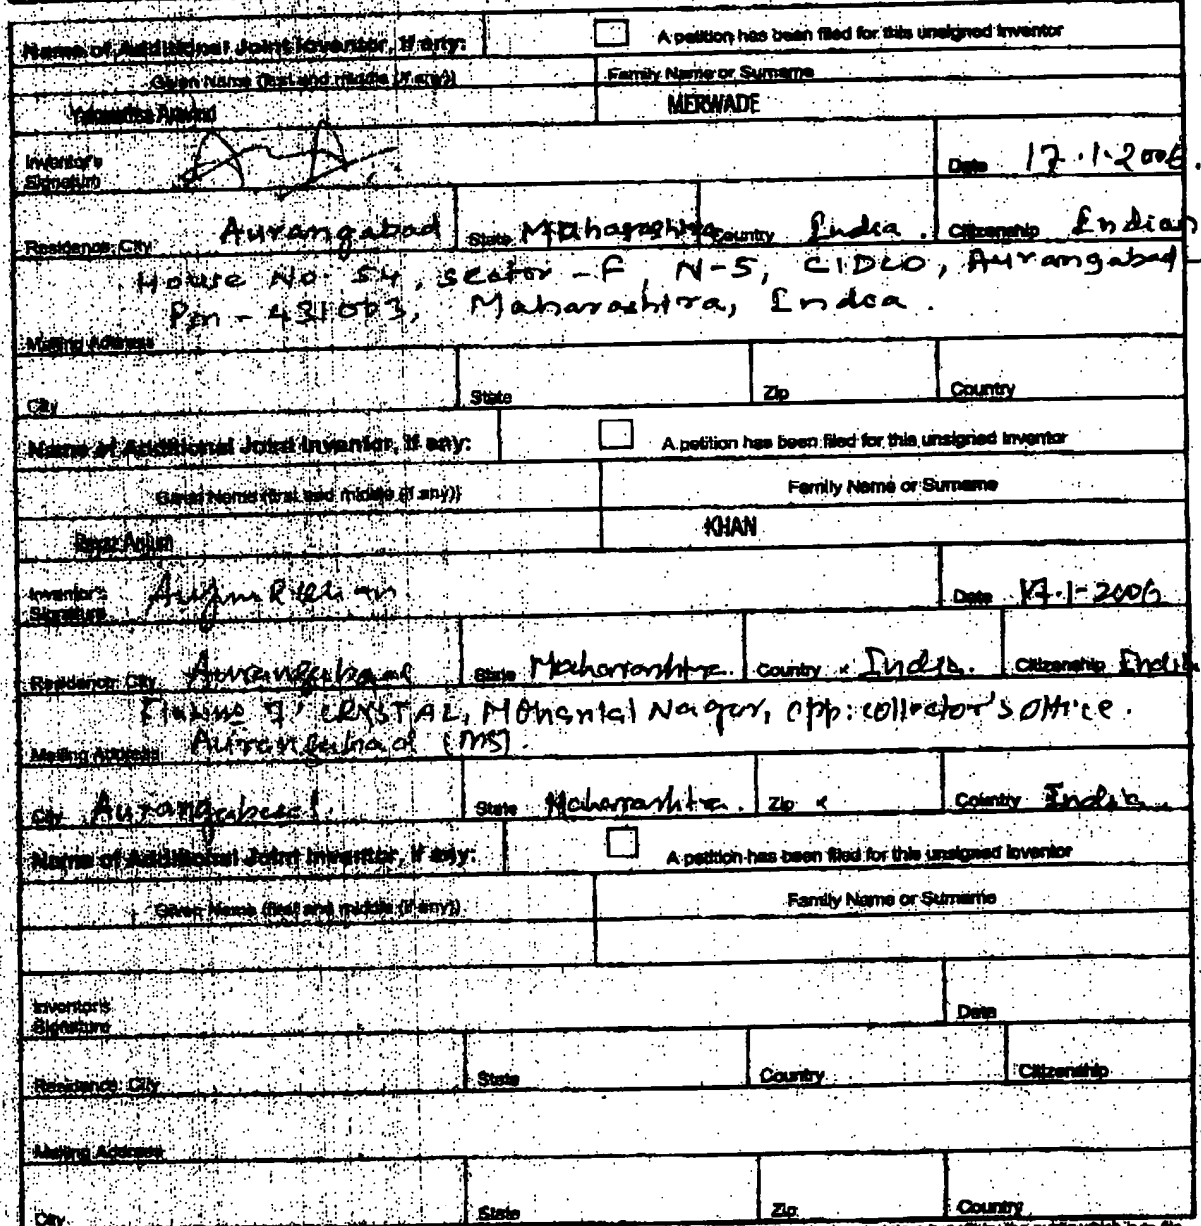 Name of Additional Joint Inventor, if any: A petition has been filed for this unsigned inventor
Given Name (first and middle (if any)) Family Name or Surname
MERWADE
Inventor's Signature Date 17.1.2006.
Residence: City Aurangabad State Maharashtra Country India. Citizenship Indian
House No 54, sector-F, N-5, CIDCO, Aurangabad-
Pin-431003, Maharashtra, India.
Mailing Address
City State Zip Country
Name of Additional Joint Inventor, if any: A petition has been filed for this unsigned inventor
Given Name (first and middle (if any)) Family Name or Surname
Anjum KHAN
Inventor's Signature Date 17.1-2006
Residence: City Aurangabad State Maharashtra. Country India. Citizenship
CRYSTAL, Nagar, opp: collector's office.
Mailing Address Aurangabad (MS).
City Aurangabad. State Maharashtra. Zip Country India
Name of Additional Joint Inventor, if any: A petition has been filed for this unsigned inventor
Given Name (first and middle (if any)) Family Name or Surname
Inventor's Signature Date
Residence: City State Country Citizenship
Mailing Address
City State Zip Country